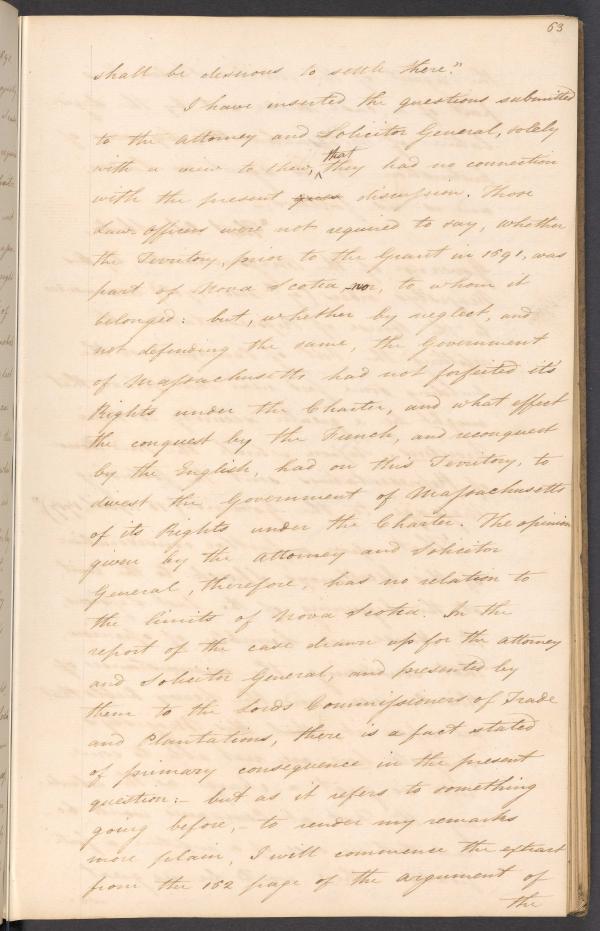 63
shall be desirous to settle there."
I have inserted the questions submitted
to the Attorney and Solicitor General, solely
with a view to shew, that they had no connection
with the present ques discussion. Those
Law officers were not required to say, whether
the Territory, prior to the Grant in 1691, was
part of Nova Scotia, nor, to whom it
belonged: but, whether by neglect, and
not defending the same, the Government
of Massachusetts had not forfeited its'
Rights under the Charter, and what effect
the conquest by the French, and reconquest
by the English, had on this Territory, to
divest the Government of Massachusetts
of its Rights under the Charter. The opinion
given by the Attorney and Solicitor
General, therefore, has no relation to
the limits of Nova Scotia. In the
report of the case drawn up for the Attorney
and Solicitor General, and presented by
them to the Lords Commissioners of Trade
and Plantations, there is a fact stated
of primary consequence in the present
question:- but as it refers to something
going before,- to render my remarks
more plain, I will commence the extract
from the 162 page of the argument of
the